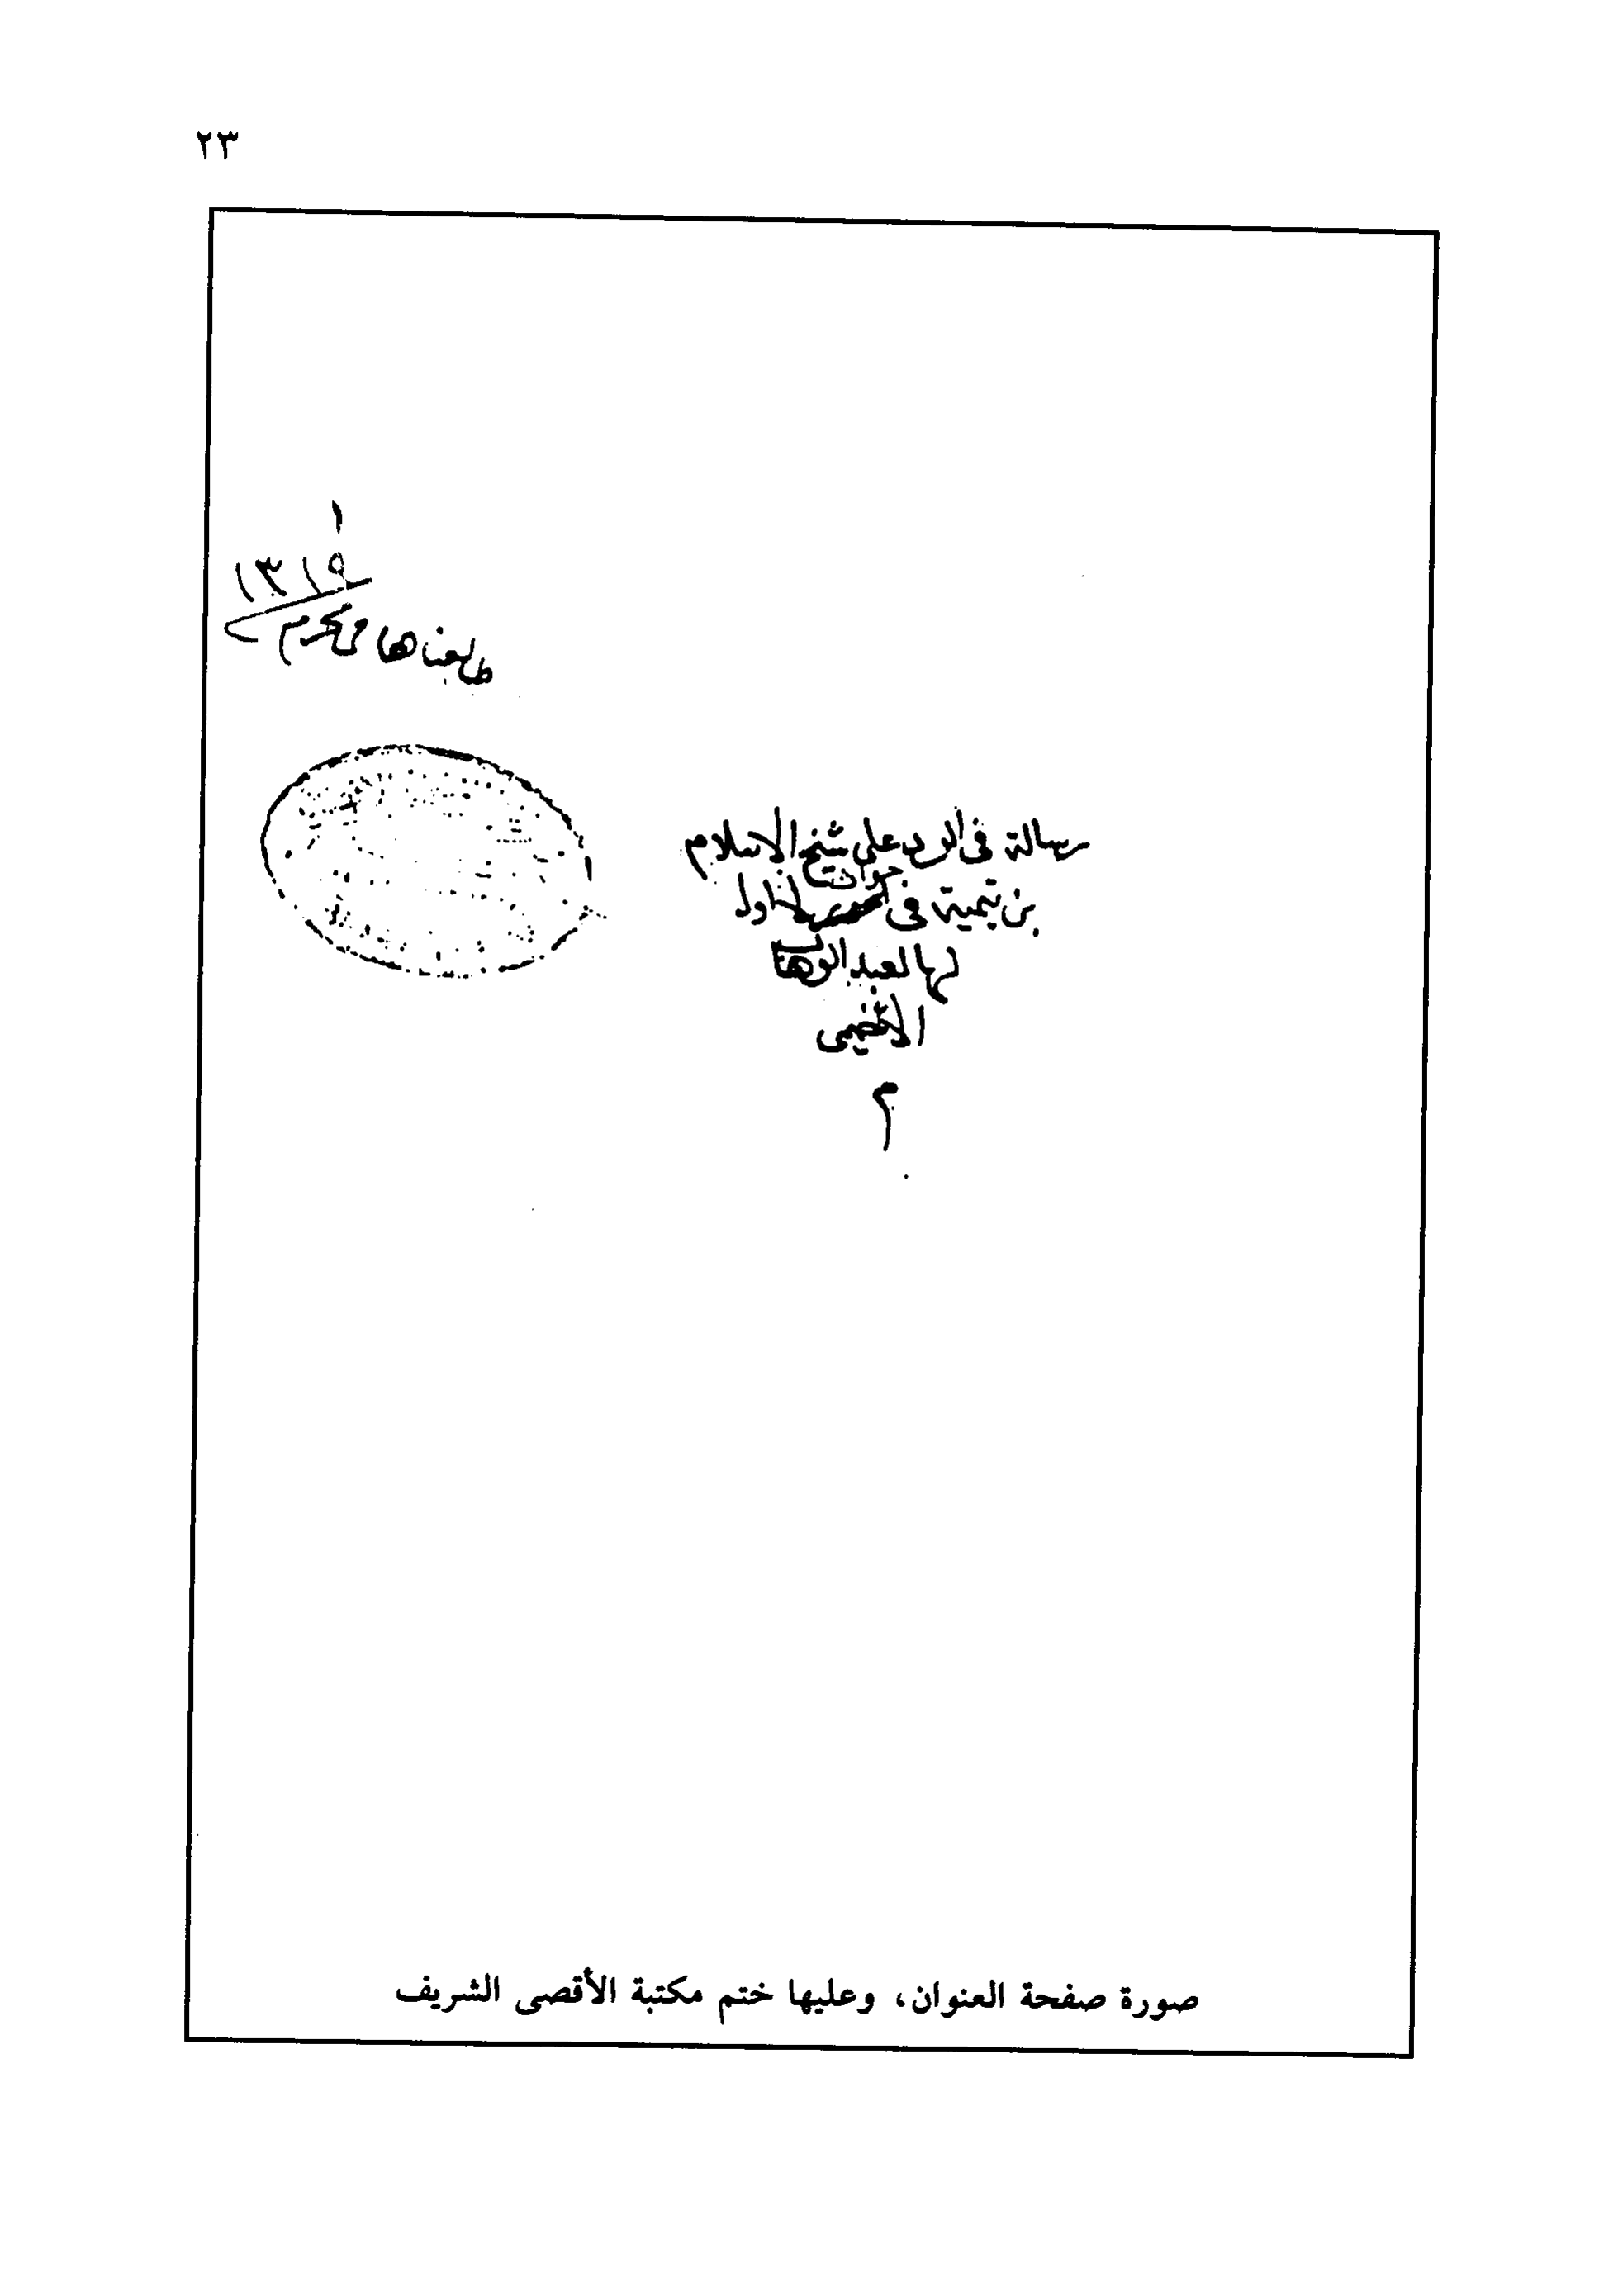 ٢٣
١
١٣١٩
طالعناها في محرم
رسالة في الرد على شيخ الاسلام
بن تيمية في حوادث لا اول
لها لعبد الوهاب
الاخميمى
م
صورة صفحة العنوان، وعليها ختم مكتبة الأقصى الشريف